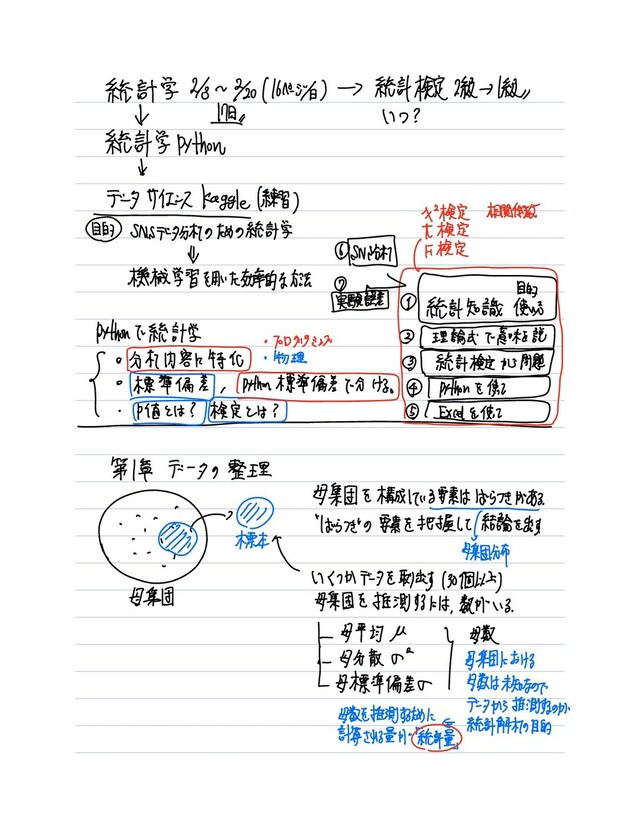 統計学 2/3〜2/20(16ページ/日) → 統計検定2級→1級
17日 いつ?
統計学 Python
データサイエンス kaggle (練習)
目的 SNSデータ分析のための統計学
機械学習を用いた効率的な方法
χ²検定 相関係数
t検定
F検定
① SNS分析
② 実験誤差
① 統計知識 目的 使い方
② 理論式で意味を説
③ 統計検定から問題
④ Pythonを使って
⑤ Excelを使って
Pythonで統計学
・プログラミング
・物理
・分析内容に特化
・標準偏差, Python 標準偏差で分ける。
・P値とは? 検定とは?
第1章 データの整理
母集団
標本
母集団を構成している要素はばらつきがある
"ばらつき"の要素を把握して結論を出す
母集団分布
いくつかデータを取出す(30個以上)
母集団を推測するには、数がいる。
母平均 μ
母分散 σ²
母標準偏差 σ
母数
母集団における
母数は未知なので
データから推測するのが
統計解析の目的
母数を推測するために
計算される量が・「統計量」